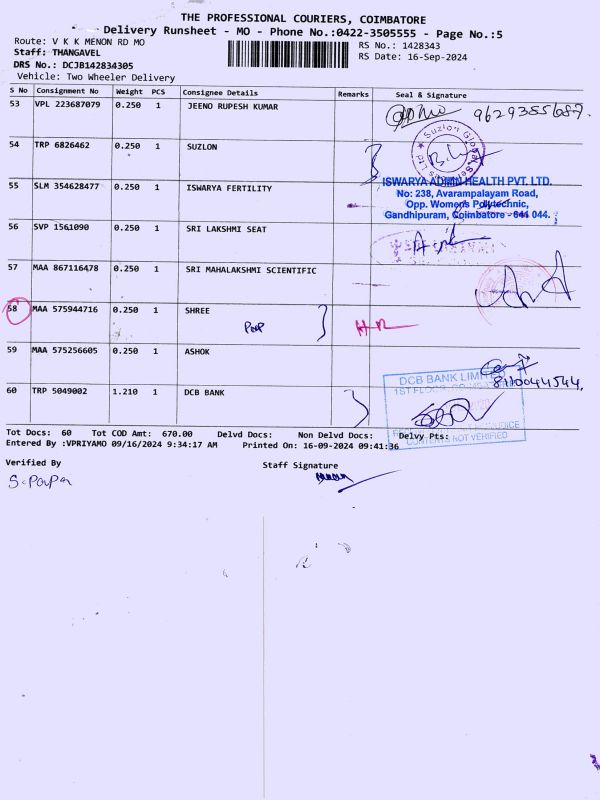 THE PROFESSIONAL COURIERS, COIMBATORE
Delivery Runsheet - MO - Phone No.:0422-3505555 - Page No.:5
Route: V K K MENON RD MO
RS No.: 1428343
Staff: THANGAVEL
RS Date: 16-Sep-2024
DRS No.: DCJB142834305
Vehicle: Two Wheeler Delivery
S No Consignment No Weight PCS Consignee Details Remarks Seal & Signature
53 VPL 223687079 0.250 1 JEENO RUPESH KUMAR 9629355687.
54 TRP 6826462 0.250 1 SUZLON
Suzlon Global
55 SLM 354628477 0.250 1 ISWARYA FERTILITY
ISWARYA ADMIN HEALTH PVT. LTD.
No: 238, Avarampalayam Road,
Opp. Women's Polytechnic,
Gandhipuram, Coimbatore - 641 044.
56 SVP 1561090 0.250 1 SRI LAKSHMI SEAT
57 MAA 867116478 0.250 1 SRI MAHALAKSHMI SCIENTIFIC
58 MAA 575944716 0.250 1 SHREE
59 MAA 575256605 0.250 1 ASHOK
8110044544.
60 TRP 5049002 1.210 1 DCB BANK
DCB BANK LIMITED
1ST FLOOR,
CONTENTS NOT VERIFIED
Tot Docs: 60 Tot COD Amt: 670.00 Delvd Docs: Non Delvd Docs: Delvy Pts:
Entered By :VPRIYAMO 09/16/2024 9:34:17 AM Printed On: 16-09-2024 09:41:36
Verified By
Staff Signature